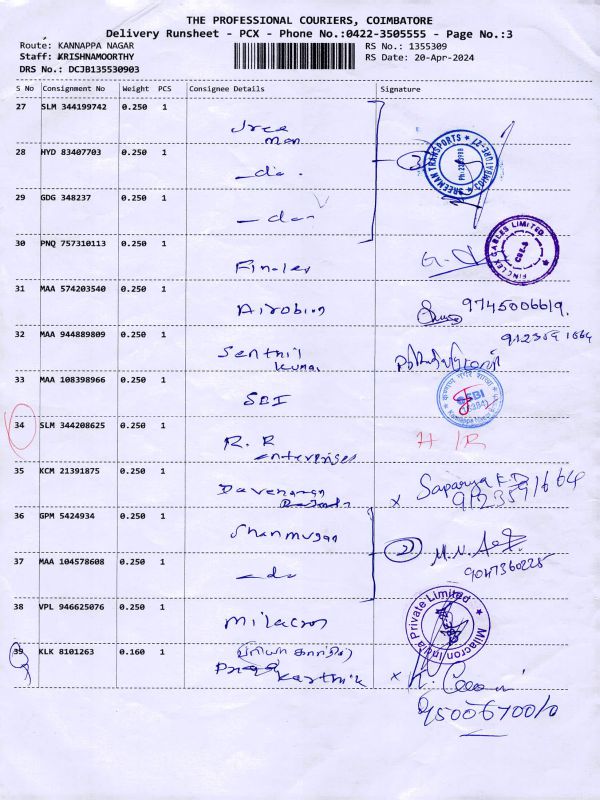 THE PROFESSIONAL COURIERS, COIMBATORE
Delivery Runsheet - PCX - Phone No.:0422-3505555 - Page No.:3
Route: KANNAPPA NAGAR
RS No.: 1355309
Staff: KRISHNAMOORTHY
RS Date: 20-Apr-2024
DRS No.: DCJB135530903
S No Consignment No Weight PCS Consignee Details Signature
27 SLM 344199742 0.250 1
Sree
man
28 HYD 83407703 0.250 1
-do.
3
SREEMAN TRANSPORTS
29 GDG 348237 0.250 1
-do-
30 PNQ 757310113 0.250 1
Finolex
FINOLEX CABLES LIMITED
31 MAA 574203540 0.250 1
Airobion
9745006619.
32 MAA 944889809 0.250 1
Senthil
Kumar
33 MAA 108398966 0.250 1
SBI
SBI
34 SLM 344208625 0.250 1
R. R
enterprises
35 KCM 21391875 0.250 1
x
9123591664
36 GPM 5424934 0.250 1
Shanmugan
2
37 MAA 104578608 0.250 1
-do
9047360225
38 VPL 946625076 0.250 1
Milacron
Milacron India Private Limited
39 KLK 8101263 0.160 1
Karthik
x